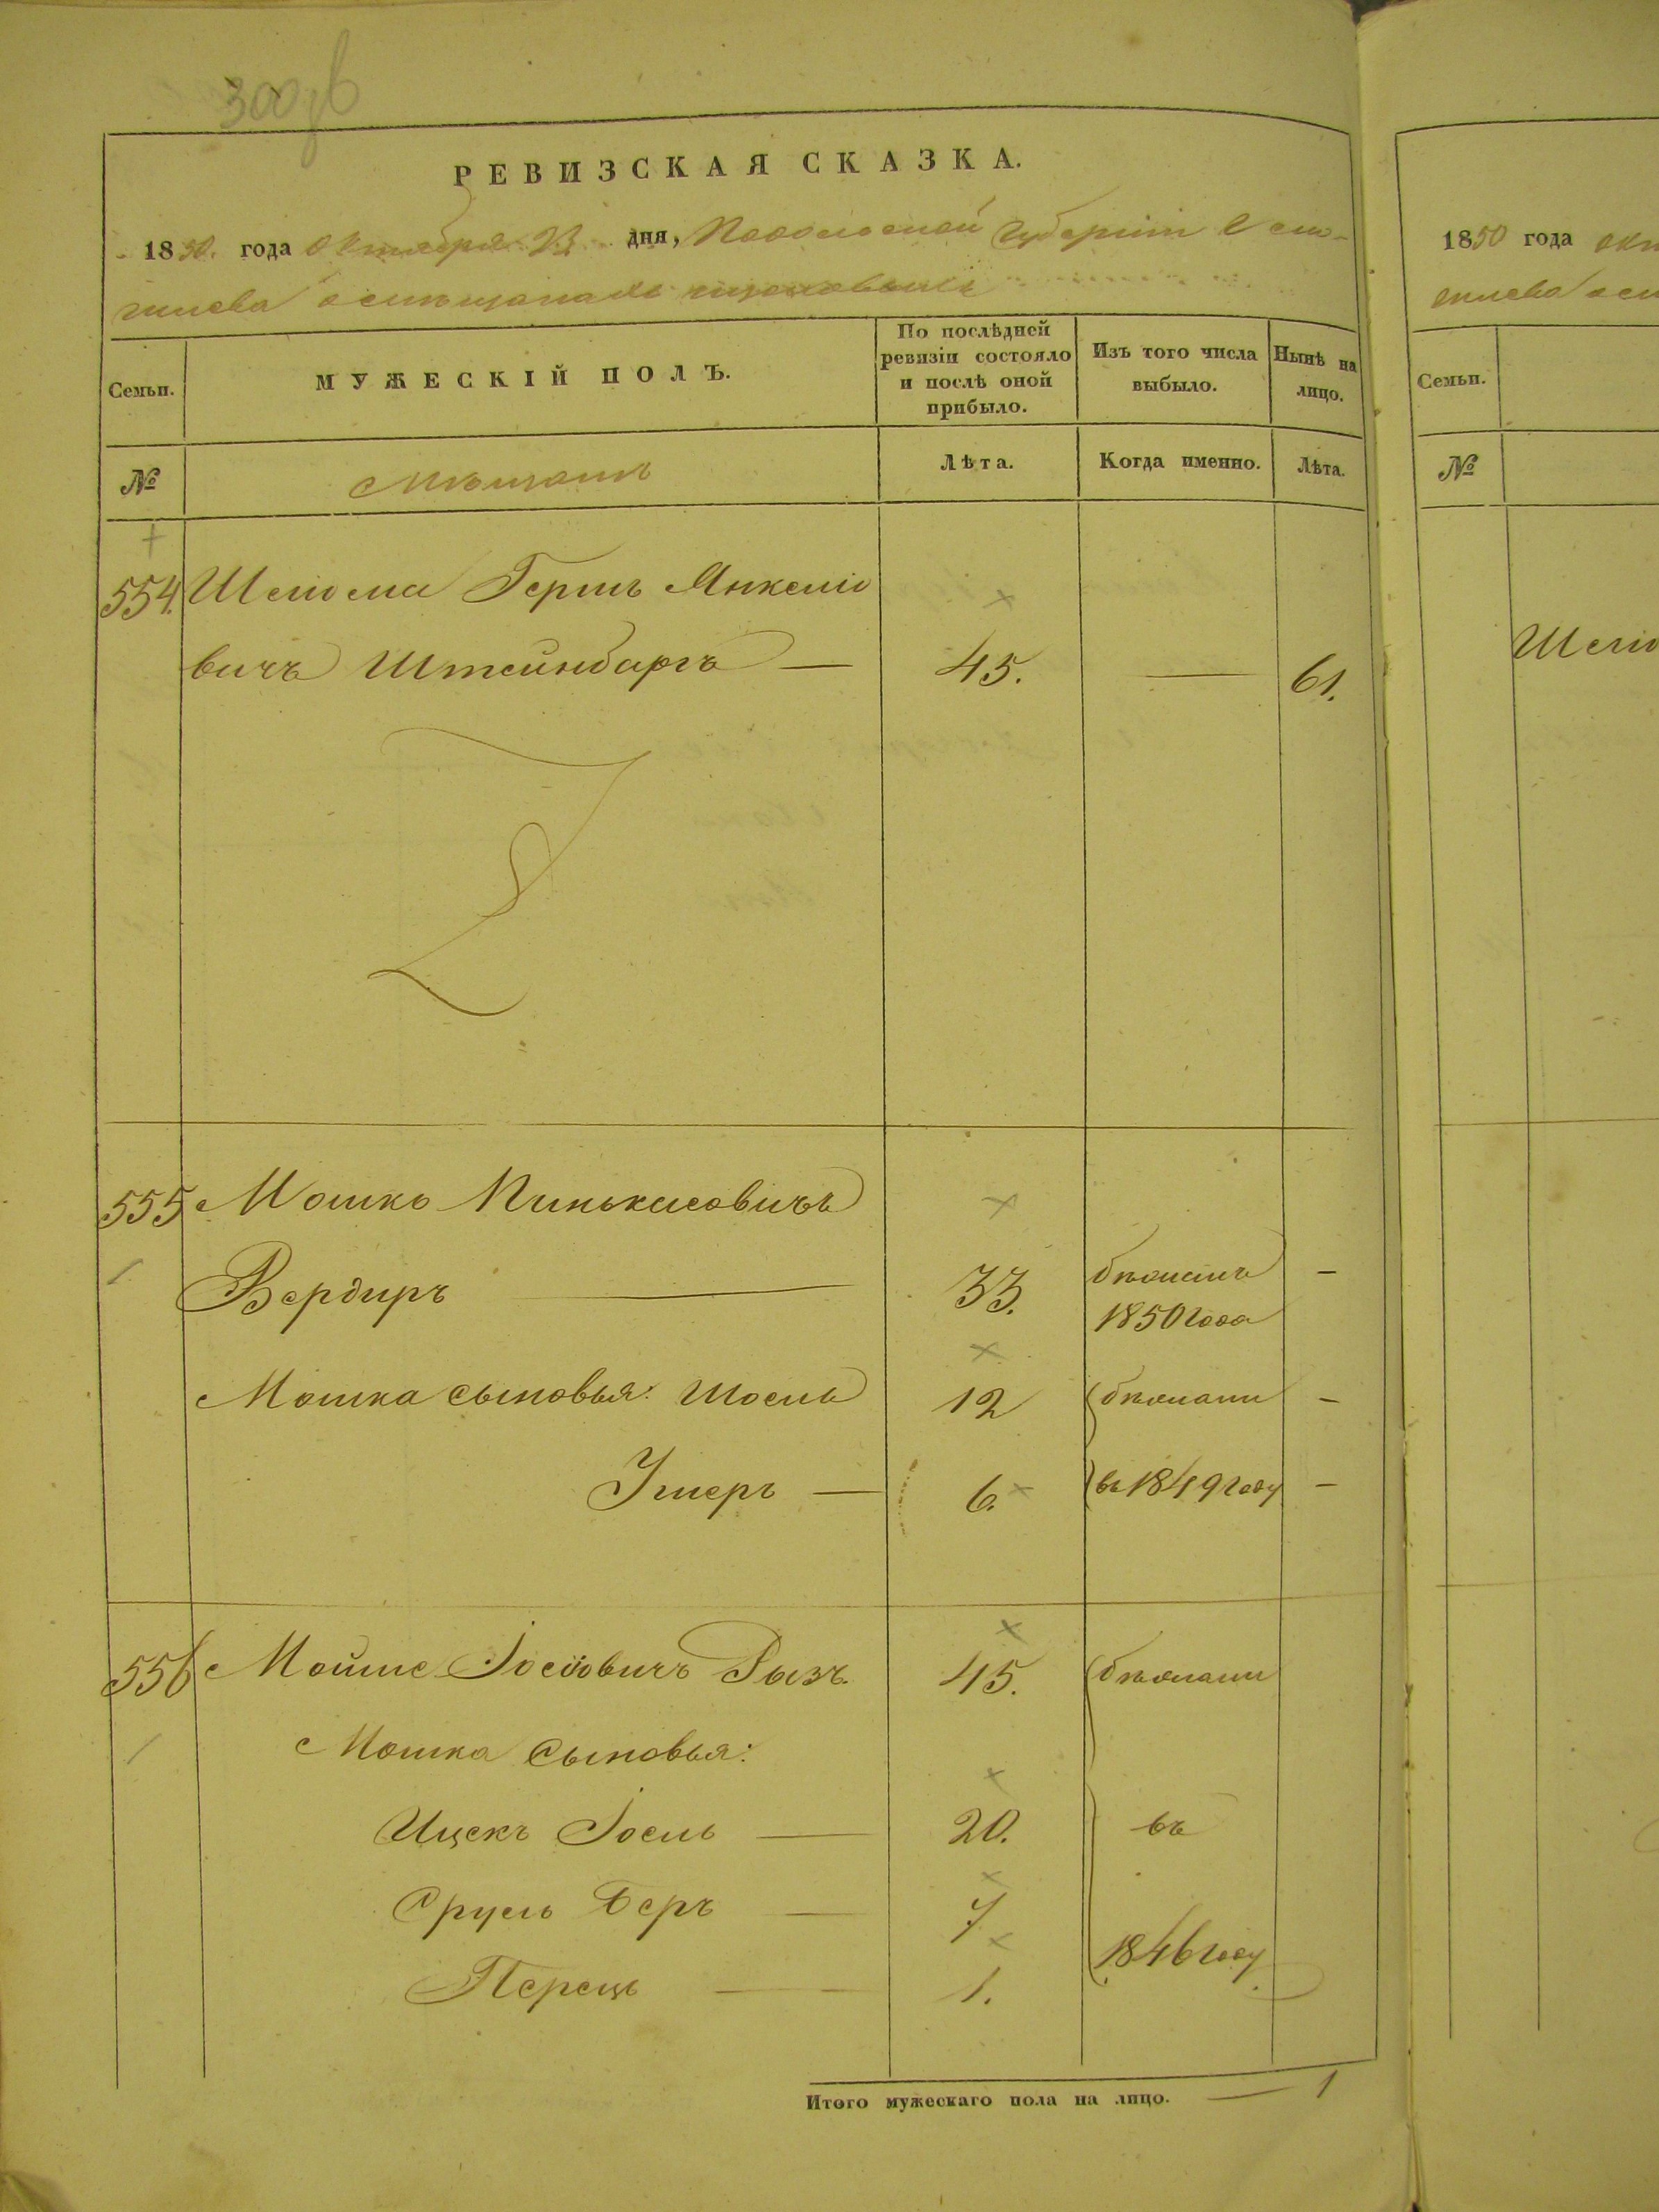 300 об
РЕВИЗСКАЯ СКАЗКА.
1850. года Октября 23 дня, Подольской Губерніи
о мѣщанахъ
Семьи.
МУЖЕСКІЙ ПОЛЪ.
По послѣдней ревизіи состояло и послѣ оной прибыло.
Изъ того числа выбыло.
Нынѣ на лицо.
№
Мѣщанъ
Лѣта.
Когда именно.
Лѣта.
554. Шлiома Гершъ Янкелiо
вичъ Штейнбаргъ — 45. — 61.
555 Мошко Пинькасовичъ
Вердиръ — 33. бѣжалъ –
1850 года
Мошка сыновья: Шоель 12 бѣжали –
Ушеръ — 6. въ 1849 году –
556 Мойше Іосіовичъ Рызъ. 45. бѣжали
Мошка сыновья:
Ицекъ Іоель — 20. въ
Сруль Беръ — 7
1846 году
Перецъ — 1.
Итого мужескаго пола на лицо. — 1
1850 года
Семьи.
№
Шлiо